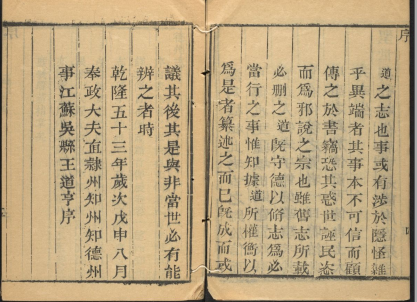 序
道之志也事或有涉於隱怪雜
乎異端者其事本不可信而顧
傳之於書竊恐其惑世誣民恣
而爲邪說之宗也雖舊志所載
必刪之道旣守德以脩志爲必
當行之事惟知據道所權衡以
爲是者纂述之而已旣成而或
議其後其是與非當世必有能
辨之者時
乾隆五十三年歲次戊申八月
奉政大夫直隸州知州知德州
事江蘇吳縣王道亨序